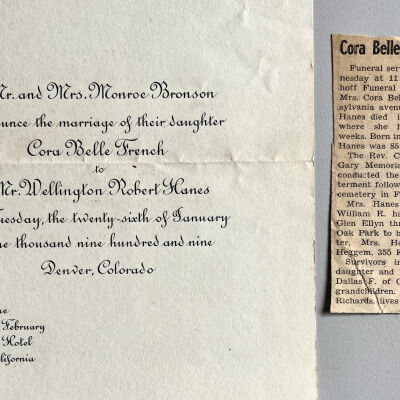 Mr. and Mrs. Monroe Bronson
ounce the marriage of their daughter
Cora Belle French
to
Mr. Wellington Robert Hanes
uesday, the twenty-sixth of January
ne thousand nine hundred and nine
Denver, Colorado
February
Hotel
lifornia
Cora Belle
Funeral ser
nesday at 11
hoff Funeral
Mrs. Cora Bel
sylvania aven
Hanes died i
where she h
weeks. Born in
Hanes was 85
The Rev. C
Gary Memoria
conducted the
terment follow
cemetery in F
Mrs. Hanes
William R. ha
Glen Ellyn thr
Oak Park to b
ter, Mrs. Ho
Heggem, 355 R
Survivors in
daughter and
Dallas F. of C
grandchildren.
Richards, lives